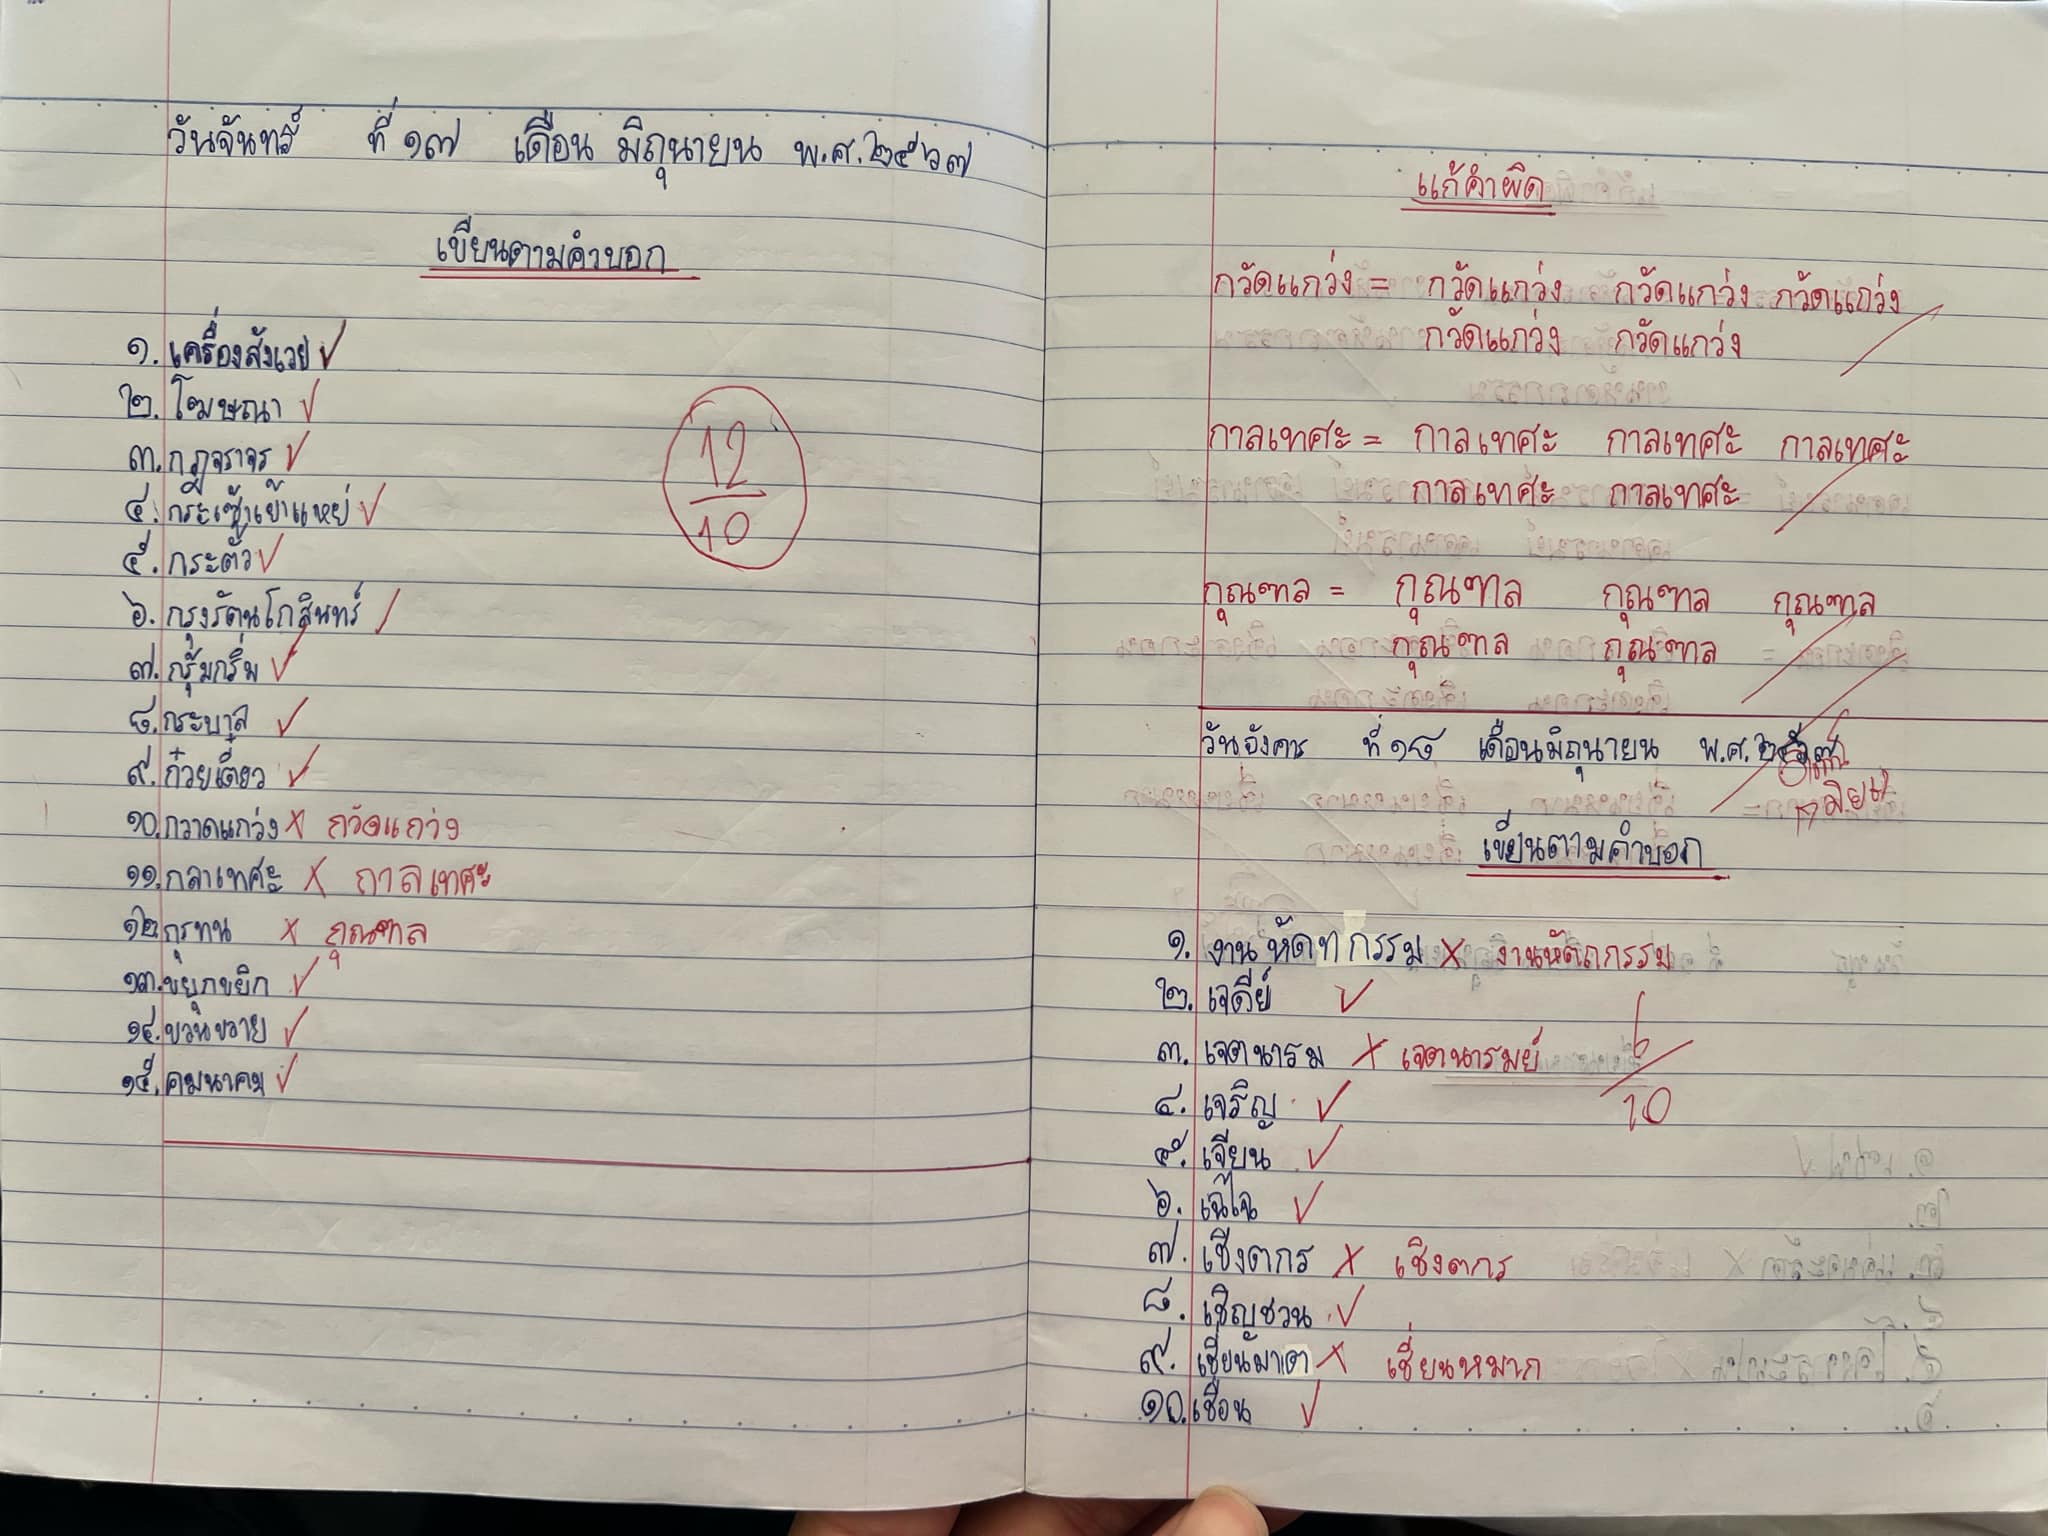 วันจันทร์ ที่ ๑๗ เดือน มิถุนายน พ.ศ.๒๕๖๗
เขียนตามคำบอก
๑. เครื่องสังเวย
๒. โฆษณา
๓. กฎจราจร
๔. กระเซ้าเย้าแหย่
๕. กระตั้ว
๖. กรุงรัตนโกสินทร์
๗. กรุ้มกริ่ม
๘. กระบาล
๙. ก๋วยเตี๋ยว
๑๐. กวาดแกว่ง × กวัดแกว่ง
๑๑. กลาเทศะ × กาลเทศะ
๑๒ กุรทน × กุณฑล
๑๓. ขยุกขยิก
๑๔. ขวนขวาย
๑๕. คมนาคม
12
10
แก้คำผิด
กวัดแกว่ง = กวัดแกว่ง กวัดแกว่ง กวัดแกว่ง
กวัดแกว่ง กวัดแกว่ง
กาลเทศะ = กาลเทศะ กาลเทศะ กาลเทศะ
กาลเทศะ กาลเทศะ
กุณฑล = กุณฑล กุณฑล กุณฑล
กุณฑล กุณฑล
วันอังคาร ที่ ๑๘ เดือนมิถุนายน พ.ศ.๒๕๖๗
เขียนตามคำบอก
๑. งานหัดทกรรม × งานหัตถกรรม
๒. เจดีย์
๓. เจตนารม × เจตนารมย์
๔. เจริญ
๕. เจียน
๖. เฉไฉ
๗. เชีงตกร × เชิงตกร
๘. เชิญชวน
๙. เชี่ยนมาเตา × เชี่ยนหมาก
๑๐. เชือน
6
10